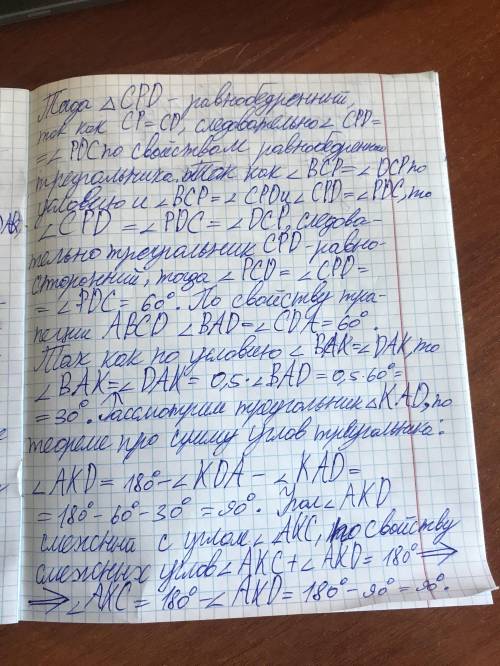 Тогда △CPD - равнобедренный,
так как CP = CD, следовательно ∠CPD =
= ∠PDC по свойством равнобедренно
треугольника. Так как ∠BCP = ∠DCP по
условию и ∠BCP = ∠CPD и ∠CPD = ∠PDC, то
∠CPD = ∠PDC = ∠DCP, следова-
тельно треугольник CPD - равно-
сторонний, тогда ∠PCD = ∠CPD =
= ∠PDC = 60°. По свойству тра-
пеции ABCD ∠BAD = ∠CDA = 60°.
Так как по условию ∠BAK = ∠DAK, то
∠BAK = ∠DAK = 0,5 · ∠BAD = 0,5 · 60° =
= 30°. Рассмотрим треугольник △KAD, по
теореме про сумму углов треугольника:
∠AKD = 180° - ∠KDA - ∠KAD =
= 180° - 60° - 30° = 90°. Угол ∠AKD
смежный с углом ∠AKC, по свойству
смежных углов ∠AKC + ∠AKD = 180° ⇒
⇒ ∠AKC = 180° - ∠AKD = 180° - 90° = 90°.